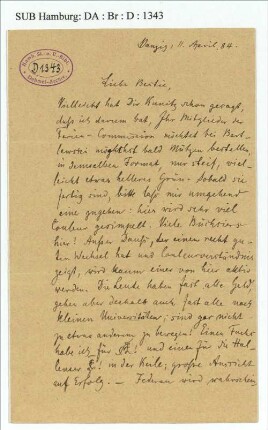 SUB Hamburg: DA : Br : D : 1343
D 1343
Danzig, 11. April 84.
Liebe Bertie,
Vielleicht hat Dir schon gesagt,
daß ich darum bat, Ihr Mitglieder der
Ferien-Commission möchtet bei Bert-
möglichst bald Mützen bestellen,
in demselben Format, nur steif, viel-
leicht etwas helleres Grün. Sobald sie
fertig sind, bitte laß mir umgehend
eine zugehen: hier wird sehr viel
Couleur gesimpelt. Viele
hier! Außer der einen recht gu-
ten Wechsel hat und Couleurverständniß
zeigt, wird kaum einer von hier aktiv
werden. Die Leute haben fast alle Geld,
gehen aber deshalb auch fast alle nach
kleinen Universitäten; sind gar nicht
zu etwas anderem zu bewegen. Einen Fuchs
habe ich für und einen für die Hal-
lenser in der Keile; große Aussicht
auf Erfolg. — Jedenfalls wird